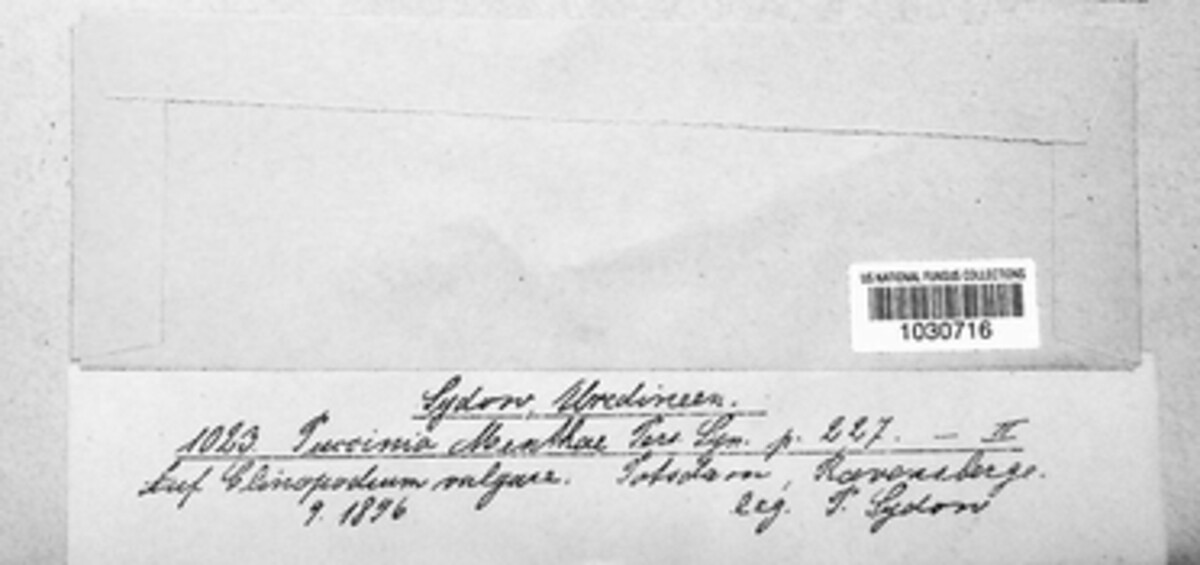 US NATIONAL FUNGUS COLLECTIONS
1030716
Sydow, Uredineen.
1023. Puccinia Menthae Pers. Syn. p. 227. — II
Auf Clinopodium vulgare. Potsdam, Ravensberge.
9. 1896 leg. P. Sydow